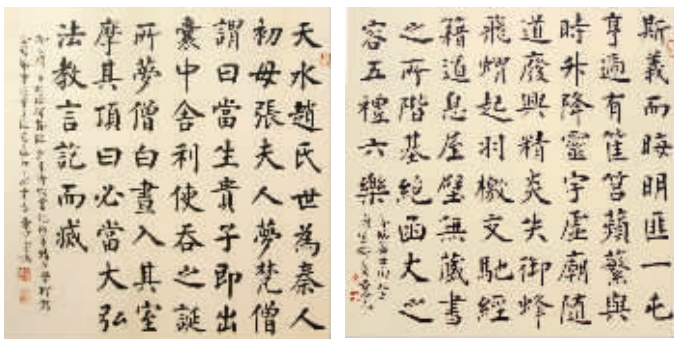 天水趙氏世為秦人
初母張夫人夢梵僧
謂曰當生貴子即出
囊中舍利使吞之誕
所夢僧白晝入其室
摩其頂曰必當大弘
法教言訖而滅
斯義而晦明匪一屯
亨遞有筐筥蘋蘩與
時升降靈宇虛廟隨
道廢興精炎失御烽
飛蝟起羽檄文馳經
籍道息屋壁無藏書
之所階基絕函丈之
容五禮六樂